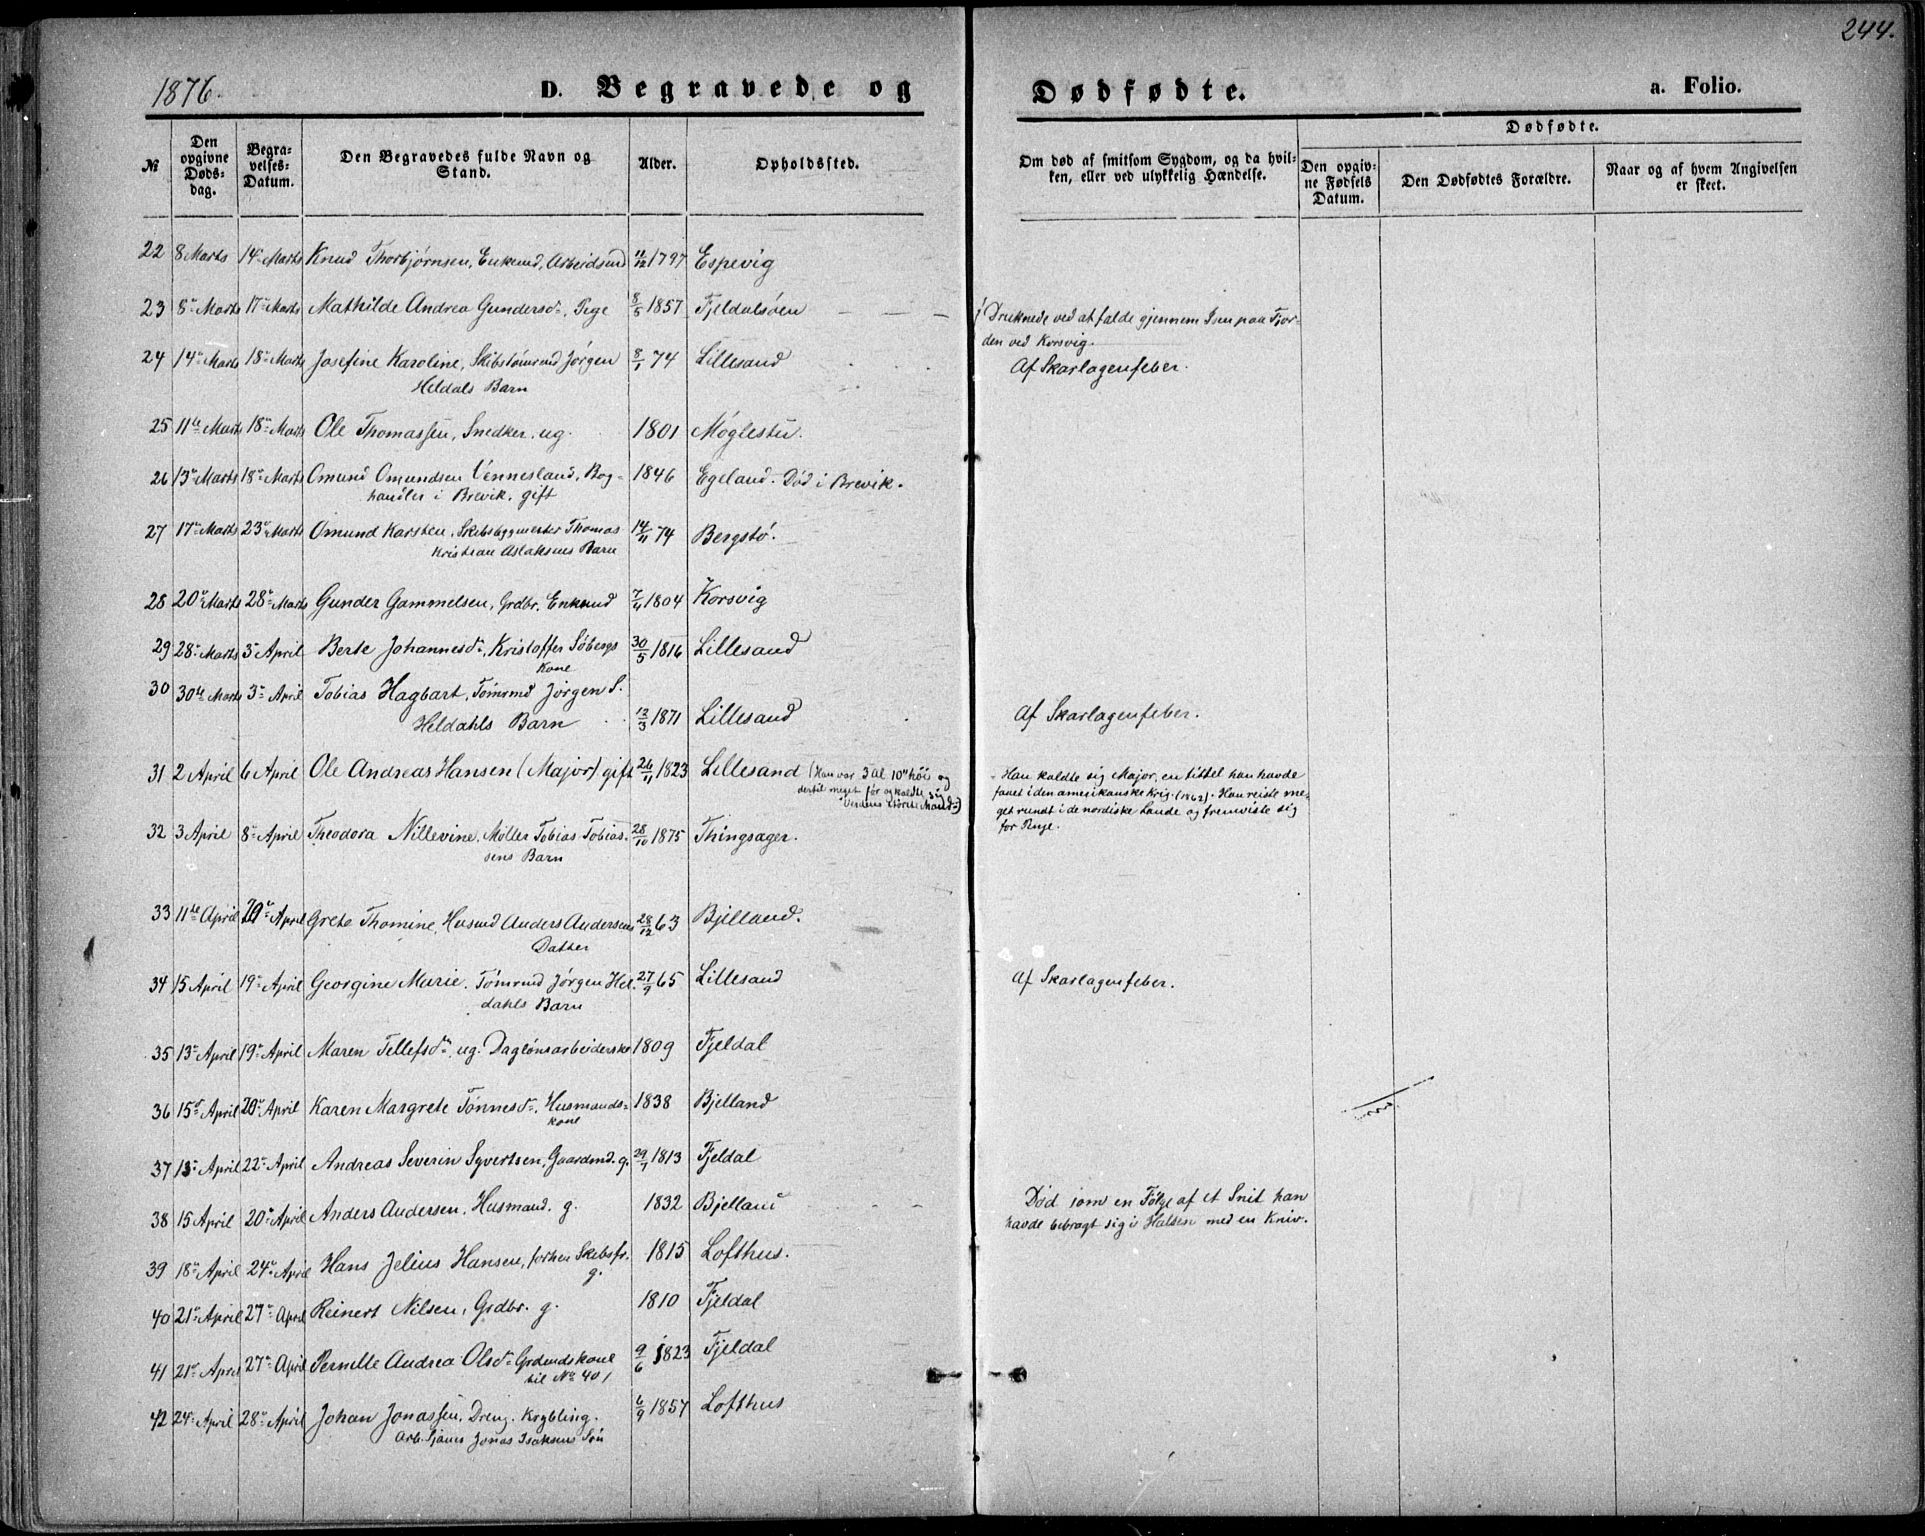 244.
1876.
D. Begravede og Dødfødte.
a. Folio.
№
Den opgivne Døds-dag.
Begra-velses-Datum.
Den Begravedes fulde Navn og Stand.
Alder.
Opholdssted.
Om død af smitsom Sygdom, og da hvil-
ken, eller ved ulykkelig Hændelse.
Dødfødte.
Den opgiv-ne Fødsels Datum.
Den Dødfødtes Forældre.
Naar og af hvem Angivelsen er skeet.
22 8 Marts 14de Marts Knud Thorbjørnsen, Enkemd, Arbeidsmd 11/12 1797 Espevig
23 8de Marts 17de Marts Mathilde Andrea Gundersd., Pige 8/5 1857 Fjeldalsøen
Druknede ved at falde gjennem Isen paa Fjor-
den ved Korsvig.
24 14de Marts 18de Marts Josefine Karoline, Skibstømrmd Jørgen 8/1 74 Lillesand Af Skarlagenfeber.
Heldals Barn
25 11te Marts 18de Marts Ole Thomassen, Snedker, ug. 1801 Møglestu.
26 13de Marts 18de Marts Omund Omundsen Vennesland, Bog- 1846 Egeland. Død i Brevik.
handler i Brevik, gift
27 17de Marts 23de Marts Omund Karsten, Skibsbygmester Thomas 14/11 74 Bergstø.
Kristian Aslaksens Barn
28 20de Marts 28de Marts Gunder Gammelsen, Grdbr. Enkemd 7/4 1804 Korsvig
29 28de Marts 3de April Berte Johannesd., Kristoffer Søbergs 30/5 1816 Lillesand
Kone
30 30te Marts 3de April Tobias Hagbart, Tømrmd Jørgen S.
Heldahls Barn 12/3 1871 Lillesand Af Skarlagenfeber.
31 2 April 6 April Ole Andreas Hansen (Major) gift 26/11 1823 Lillesand (Han var 3 al 10" høi og
dertil meget før og kaldte sig
Verdens største Mand)
Han kaldte sig Major, en tittel han havde
faaet i den amerikanske Krig. (1862). Han reiste me-
get rundt i de nordiske Lande og fremviste sig
for Penge.
32 3 April 8de April Theodora Nillevine, Møller Tobias Tobias- 28/10 1875 Thingsager.
sens Barn
33 11te April 20de April Grete Thomine, Husmd Anders Andersens 28/12 63 Bjelland.
Datter
34 15 April 19de April Georgine Marie, Tømrmd Jørgen Hel- 27/9 65 Lillesand Af Skarlagenfeber.
dahls Barn
35 13de April 19de April Maren Tellefsd., ug. Daglønsarbeiderske 1809 Fjeldal
36 15de April 20de April Karen Margrete Tønnesd., Husmands- 1838 Bjelland
kone
37 13de April 22de April Andreas Severin Syvertsen, Gaardmd. g. 29/7 1813 Fjeldal
38 15 April 20de April Anders Andersen, Husmand. g. 1832 Bjelland
Død som en Følge af et Snit han
havde bebragt sig i Halsen med en Kniv.
39 18de April 24de April Hans Jelius Hansen, forhen Skibsfr. 1815 Lofthus.
g.
40 21de April 27de April Reinert Nilsen, Grdbr. g. 1810 Fjeldal
41 21de April 27de April Pernille Andrea Olsd. Grdmdskone 9/6 1823 Fjeldal
til No 40
42 24de April 28de April Johan Jonassen, Dreng. Krybling. 6/9 1857 Lofthus
Jonas Isaksens Søn